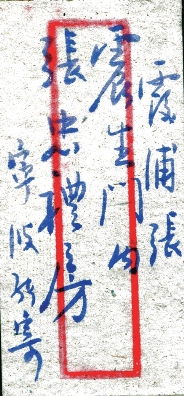 霞浦張
震生門內
張忠禮房
寧波張寄